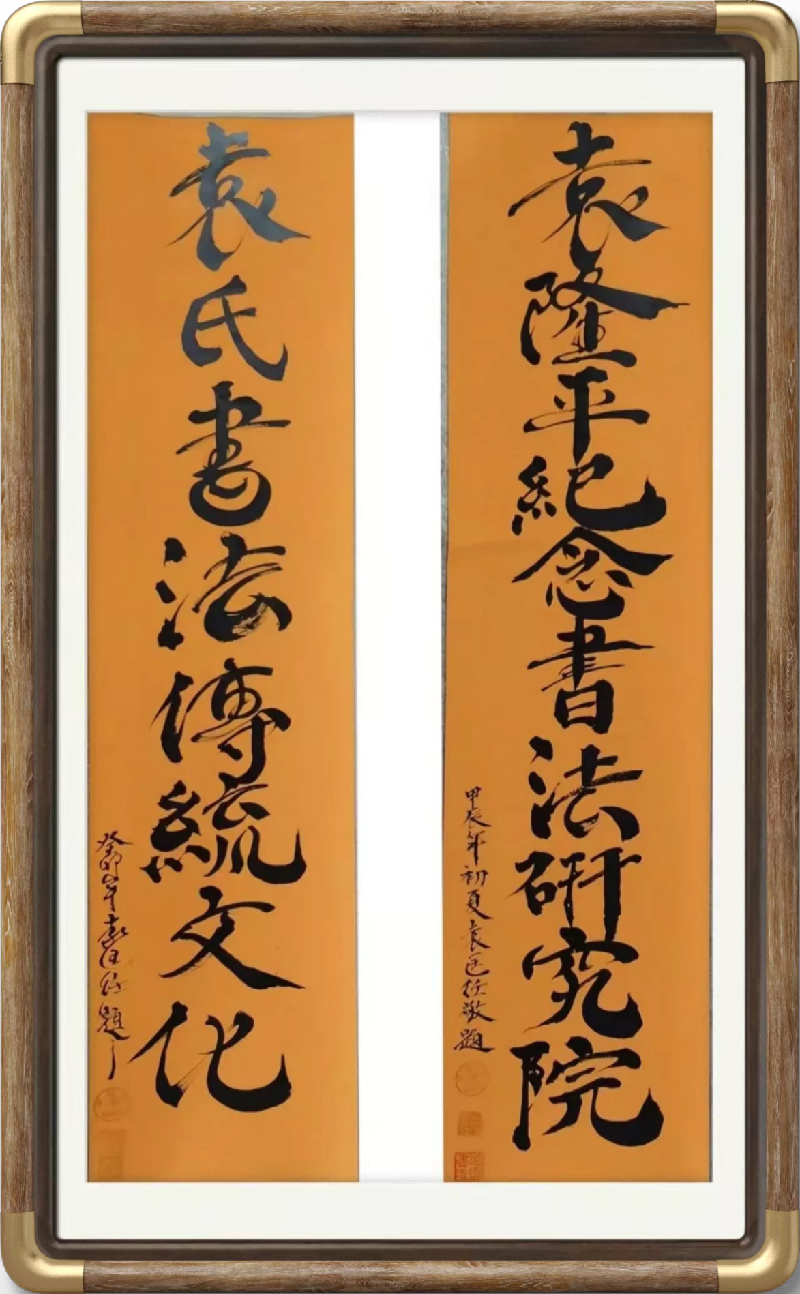 袁隆平紀念書法研究院
甲辰年初夏袁 敬題
袁氏書法傳統文化
癸卯年袁 題